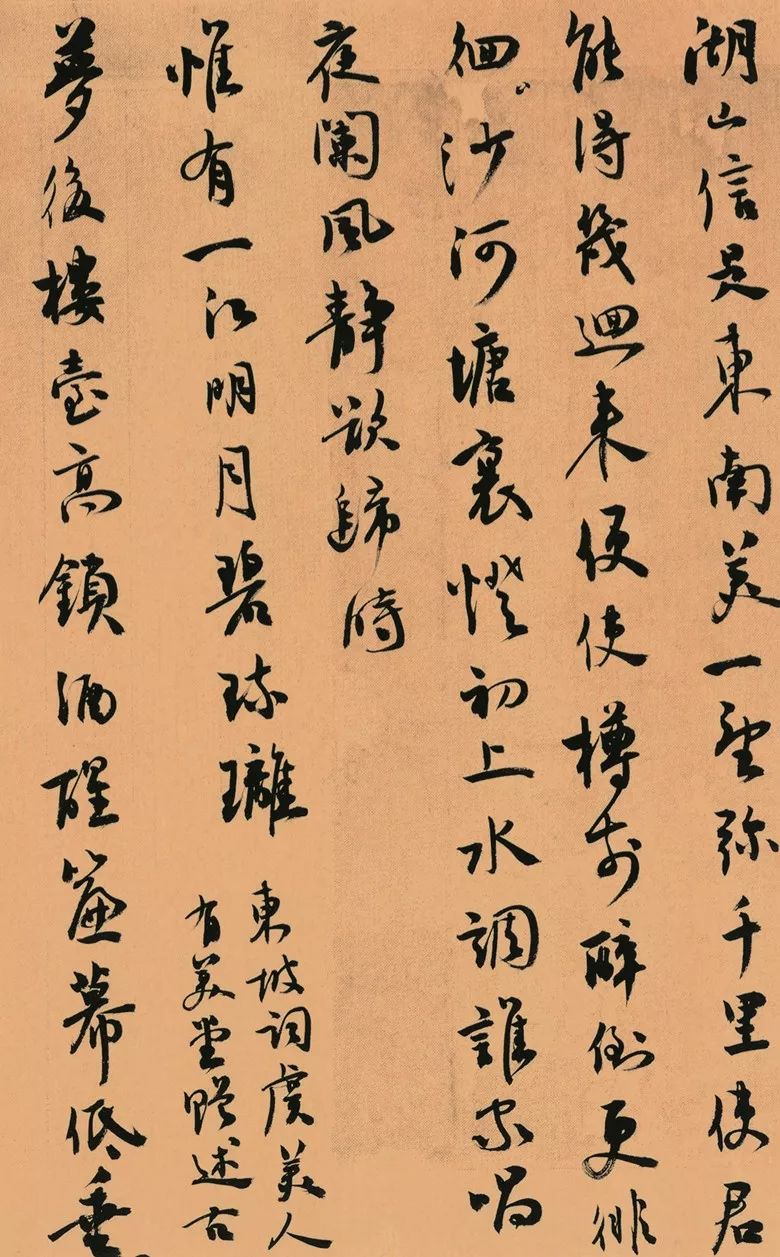 湖山信是東南美一望弥千里使君
能得幾迴来便使樽前醉倒更徘
徊沙河塘裏燈初上水調誰家唱
夜闌風静欲歸時
惟有一江明月碧琉璃
東坡詞虞美人
有美堂贈述古
夢後樓臺高鎖酒醒簾幕低垂